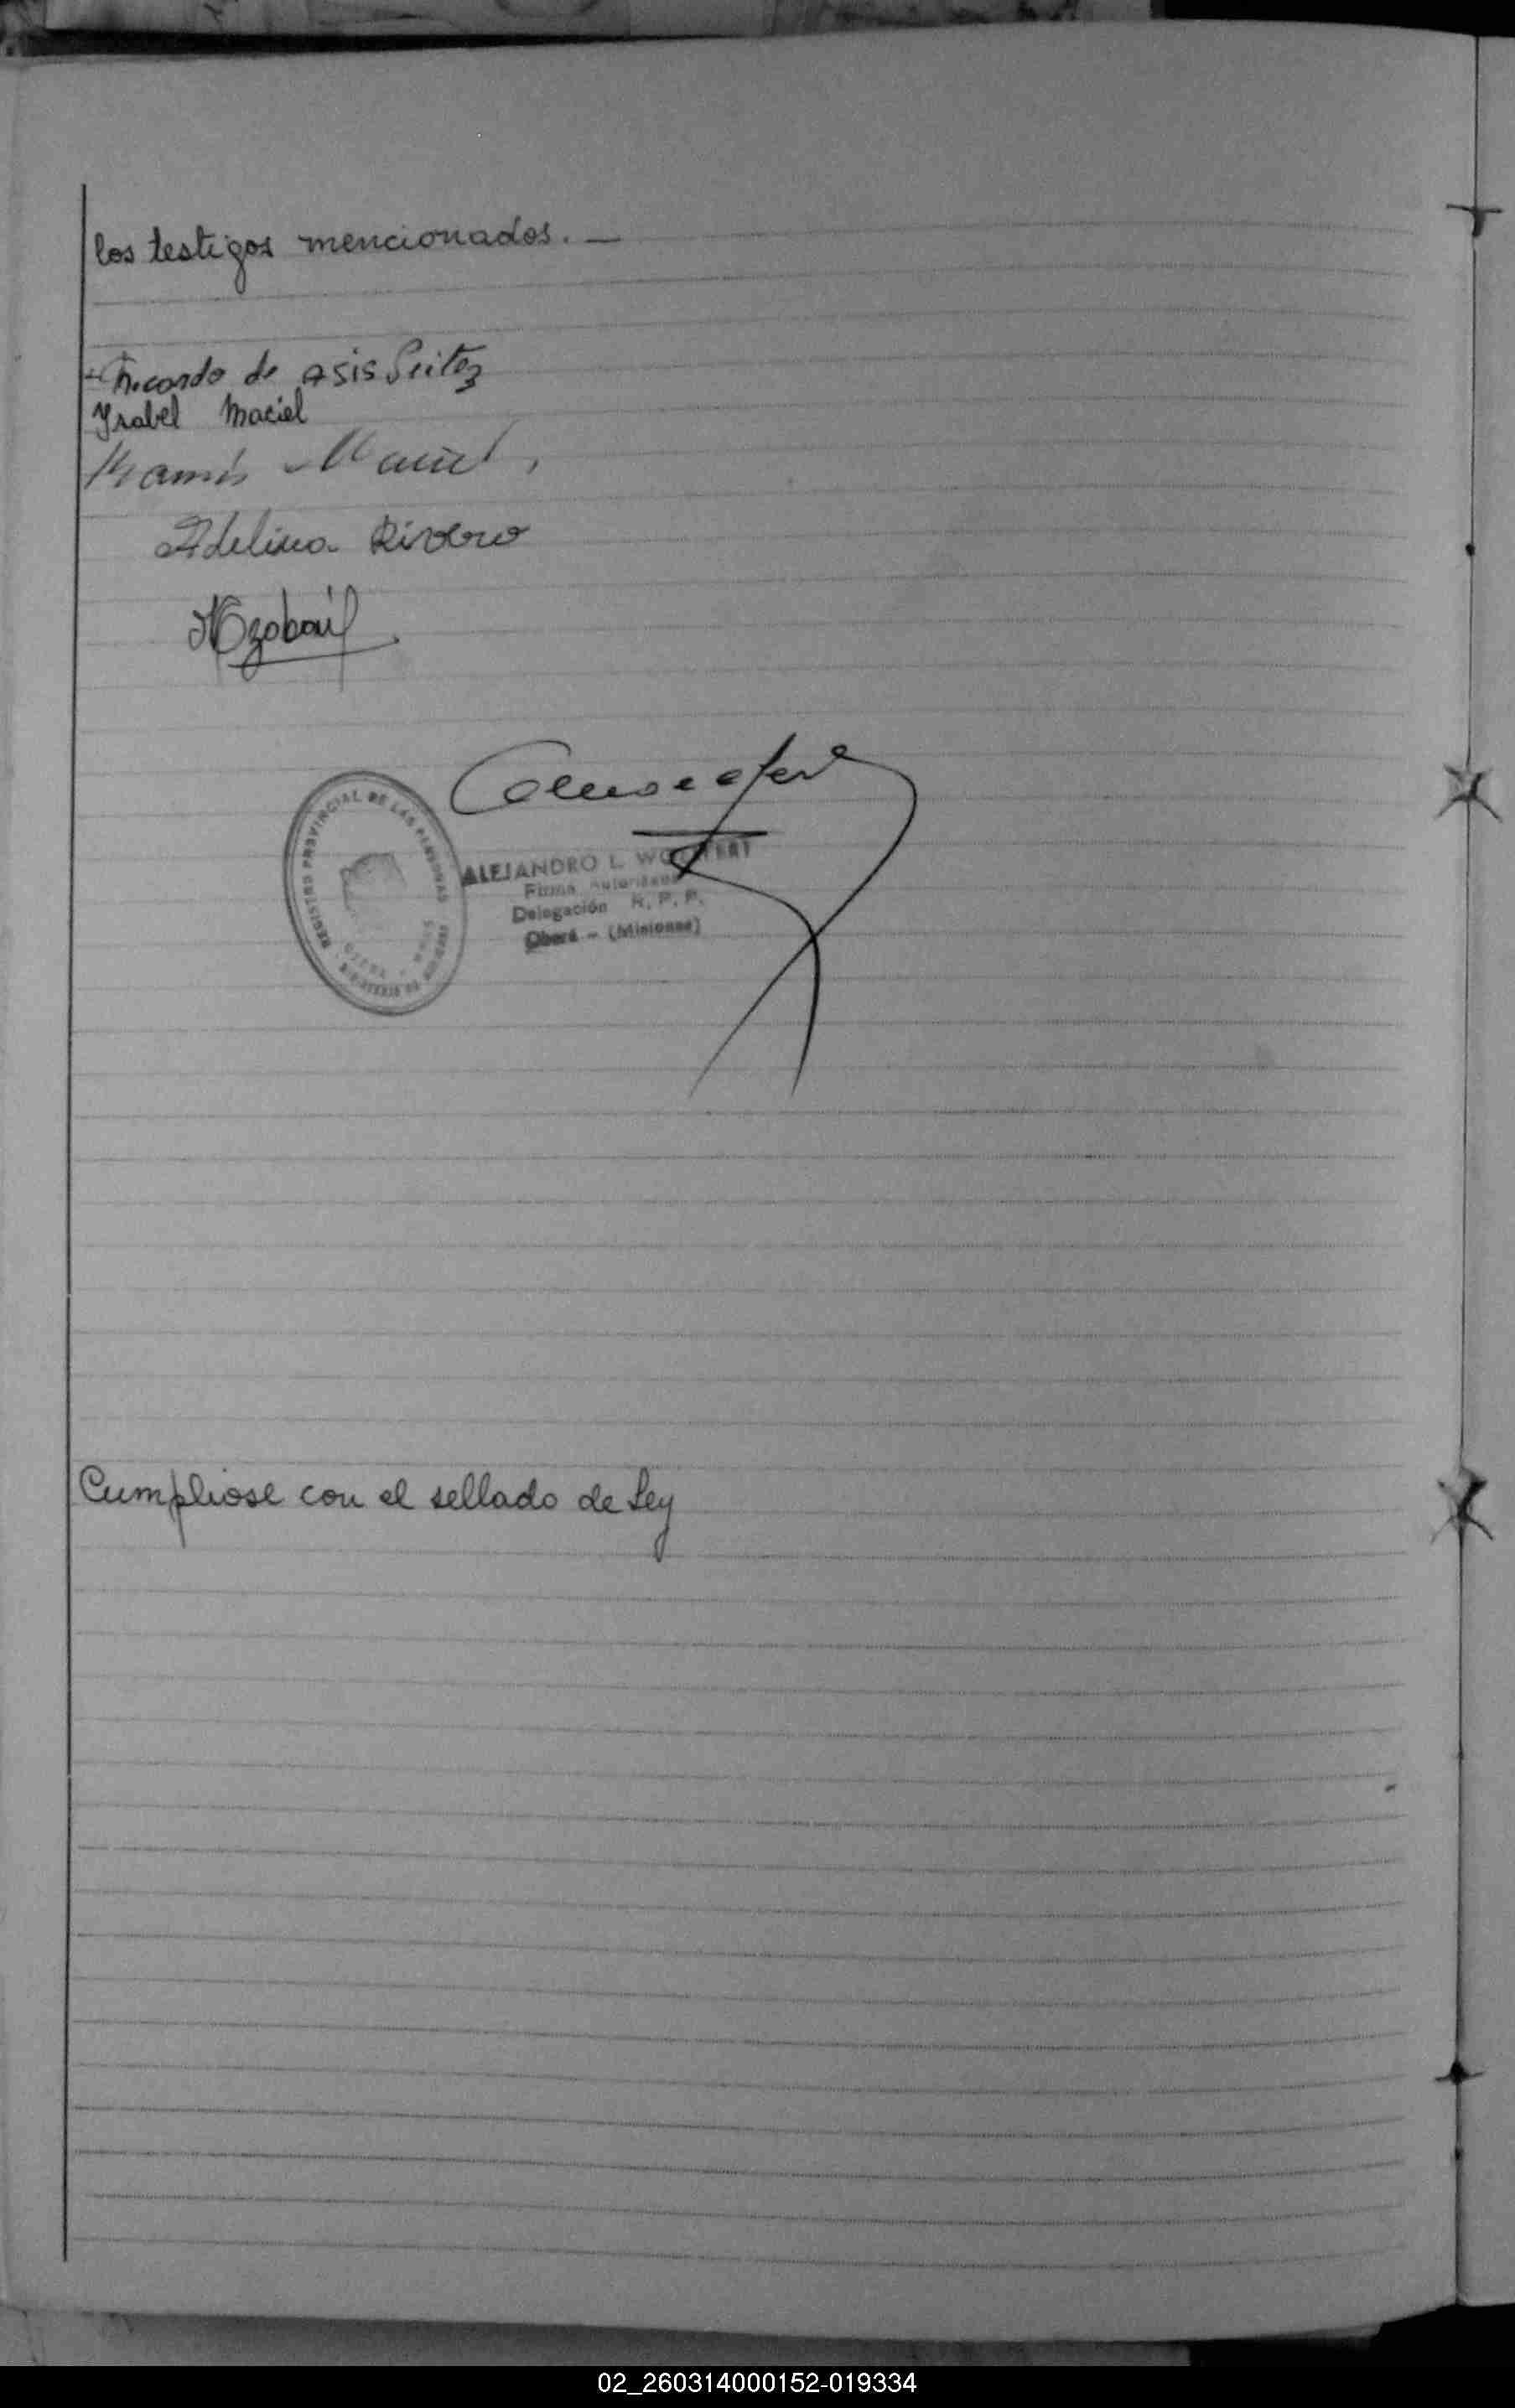 los testigos mencionados. —
Ricardo de Asis
Ysabel Maciel
Ramón Maciel
Adelina Rivero
REGISTRO PROVINCIAL DE LAS PERSONAS
ALEJANDRO L.
Firma Autorizada
Delegación R. P. P.
Oberá - (Misiones)
Cumpliose con el sellado de Ley
02_260314000152-019334